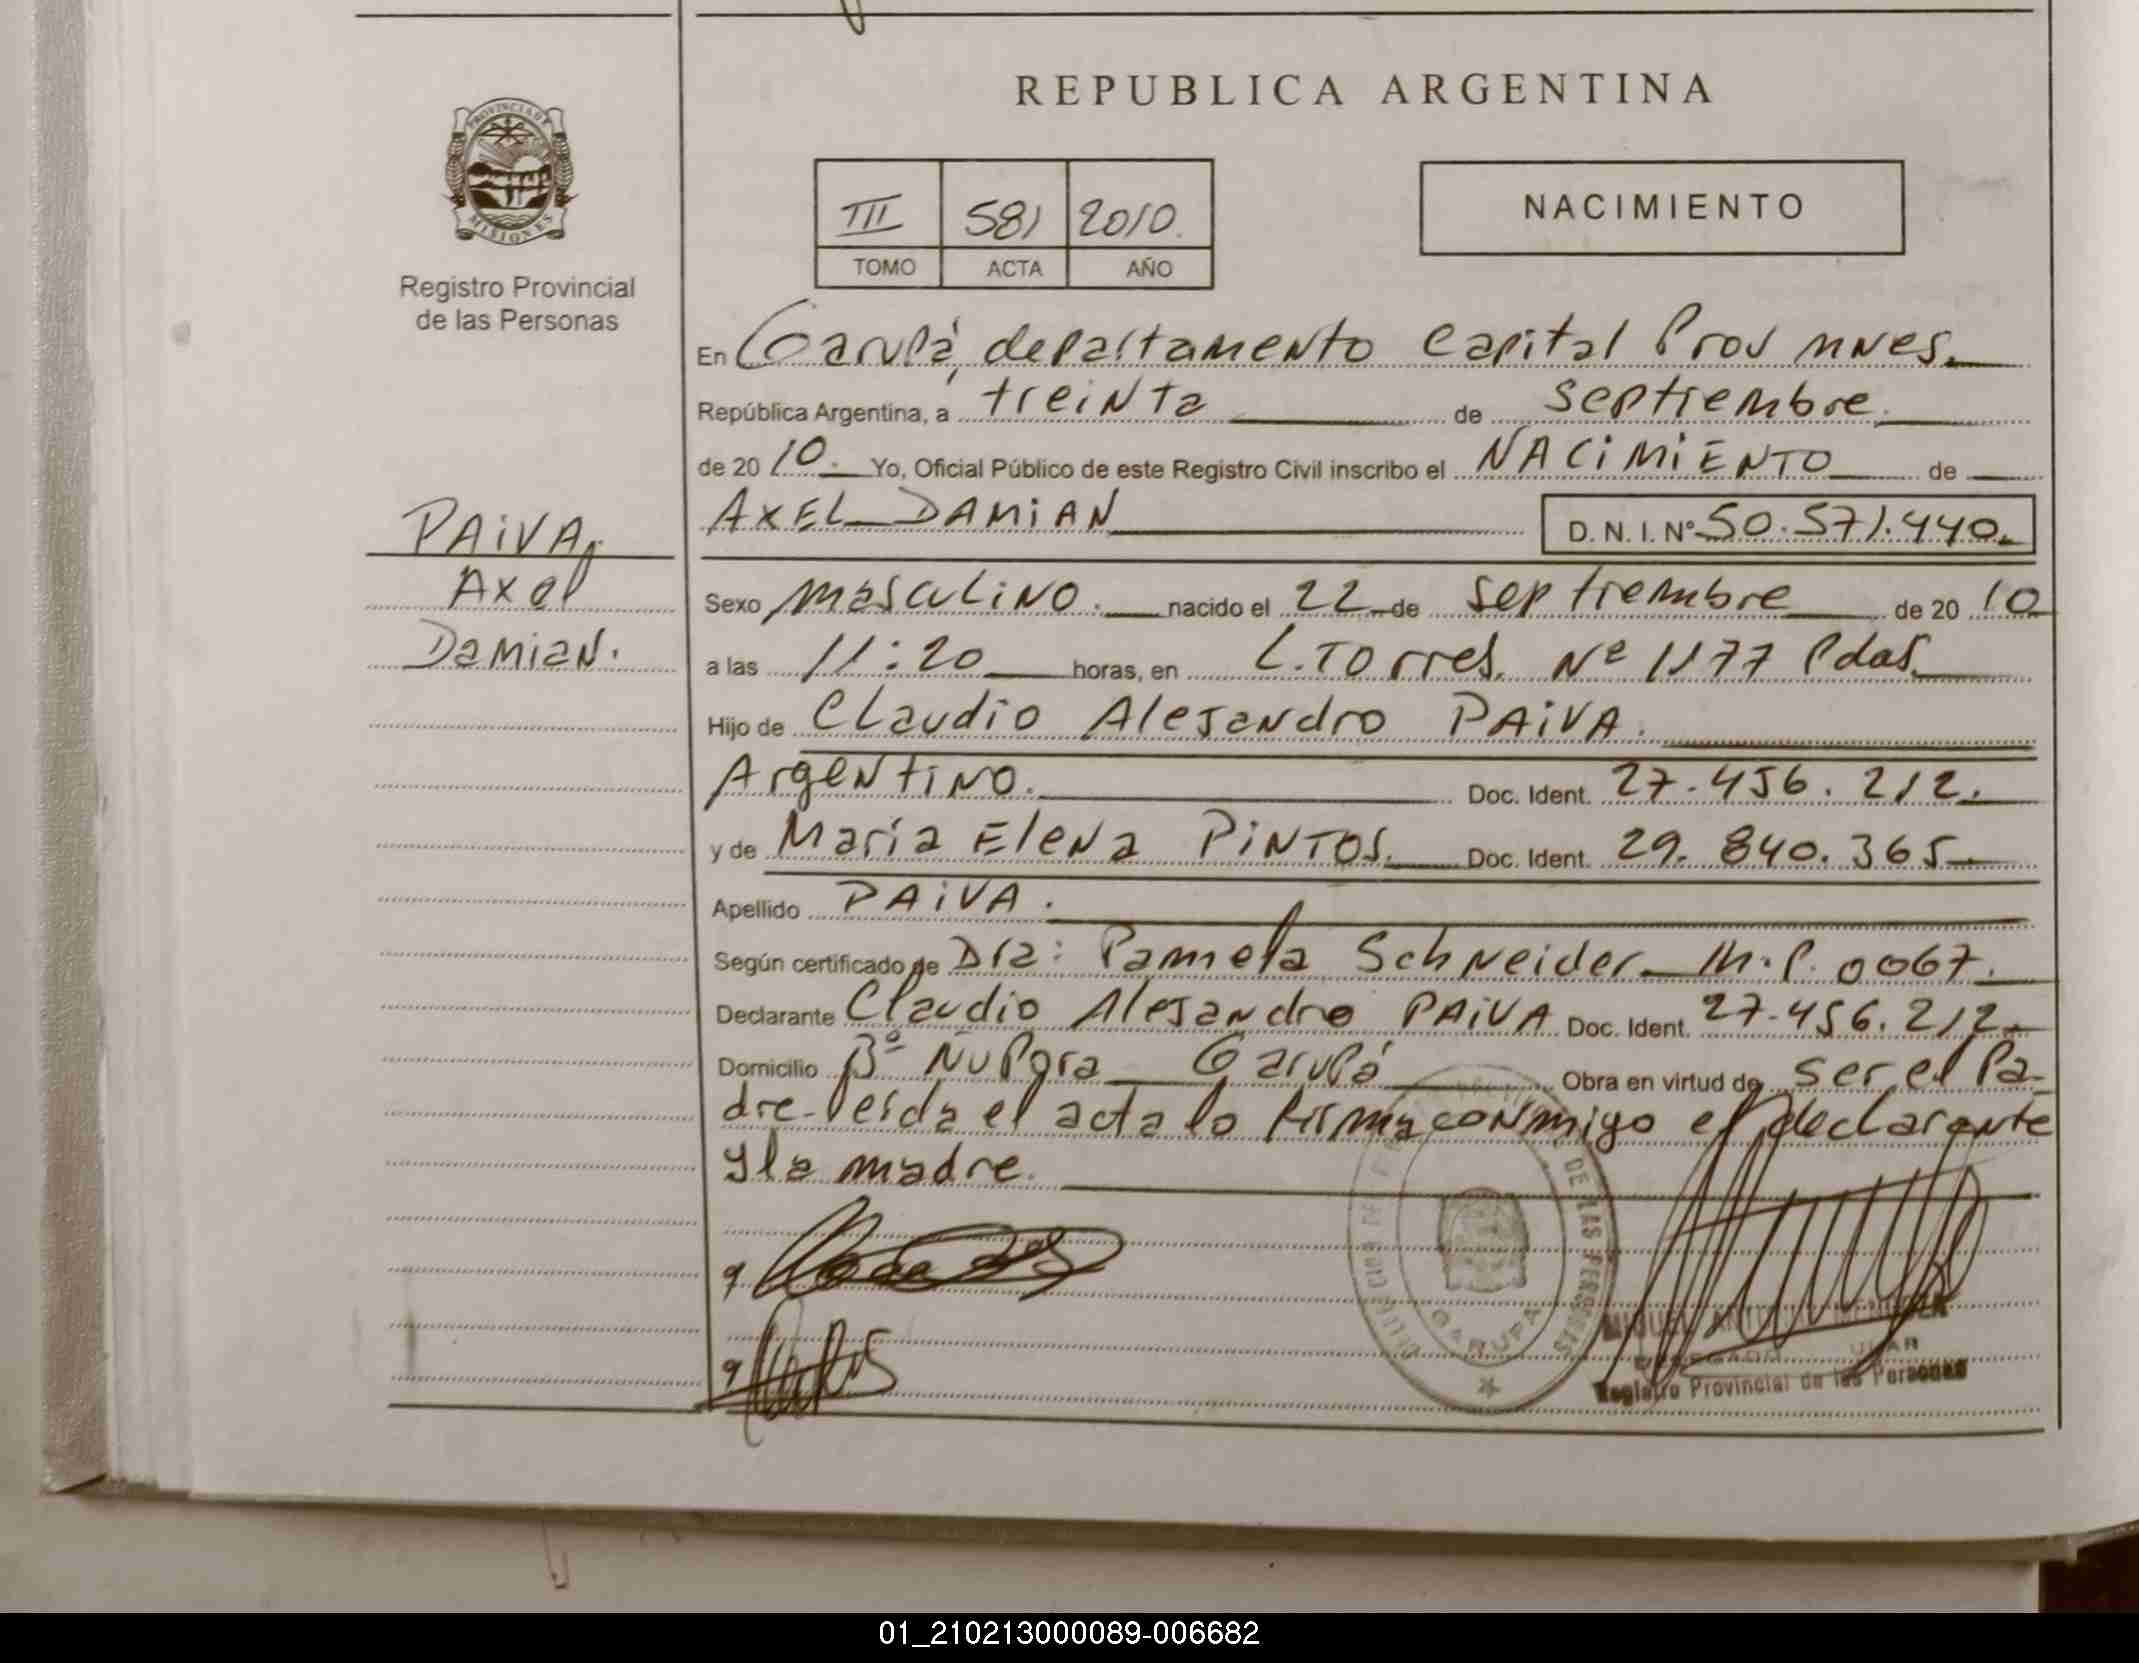 REPUBLICA ARGENTINA
PROVINCIA DE
MISIONES
Registro Provincial
de las Personas
III 581 2010.
TOMO ACTA AÑO
NACIMIENTO
En Garupá, departamento Capital Prov mnes.
República Argentina, a treinta de septiembre.
de 20 10. Yo, Oficial Público de este Registro Civil inscribo el NACIMIENTO de
AXEL DAMIAN D. N. I. Nº 50.571.440.
PAIVA,
Axel
Damian.
Sexo masculino. nacido el 22 de septiembre de 20 10
a las 11:20 horas, en L. Torres. Nº 1177 Pdas.
Hijo de Claudio Alejandro PAIVA.
Argentino. Doc. Ident. 27.456.212.
y de María Elena PINTOS. Doc. Ident. 29.840.365.
Apellido PAIVA.
Según certificado de Dra: Pamela Schneider M.P. 0067.
Declarante Claudio Alejandro PAIVA Doc. Ident. 27.456.212.
Domicilio Bº Ñu Pora Garupá Obra en virtud de ser el Pa-
dre. Leida el acta lo firma conmigo el declarante
y la madre.
DE LAS PERSONAS
GARUPA
MIGUEL
Registro Provincial de las Personas
01_210213000089-006682